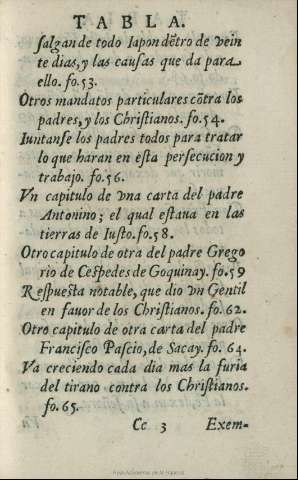 TABLA.
ſalgan de todo Iapon dẽtro de vein
te dias, y las cauſas que da para
ello. fo.53.
Otros mandatos particulares cõtra los
padres, y los Chriſtianos. fo.54.
Iuntanſe los padres todos para tratar
lo que haran en eſta perſecucion y
trabajo. fo.56.
Vn capitulo de vna carta del padre
Antonino; el qual eſtaua en las
tierras de Iuſto. fo.58.
Otro capitulo de otra del padre Grego
rio de Ceſpedes de Goquinay. fo.59
Reſpueſta notable, que dio vn Gentil
en fauor de los Chriſtianos. fo.62.
Otro capitulo de otra carta del padre
Franciſco Paſcio, de Sacay. fo. 64.
Va creciendo cada dia mas la furia
del tirano contra los Chriſtianos.
fo.65.
Cc 3 Exem-